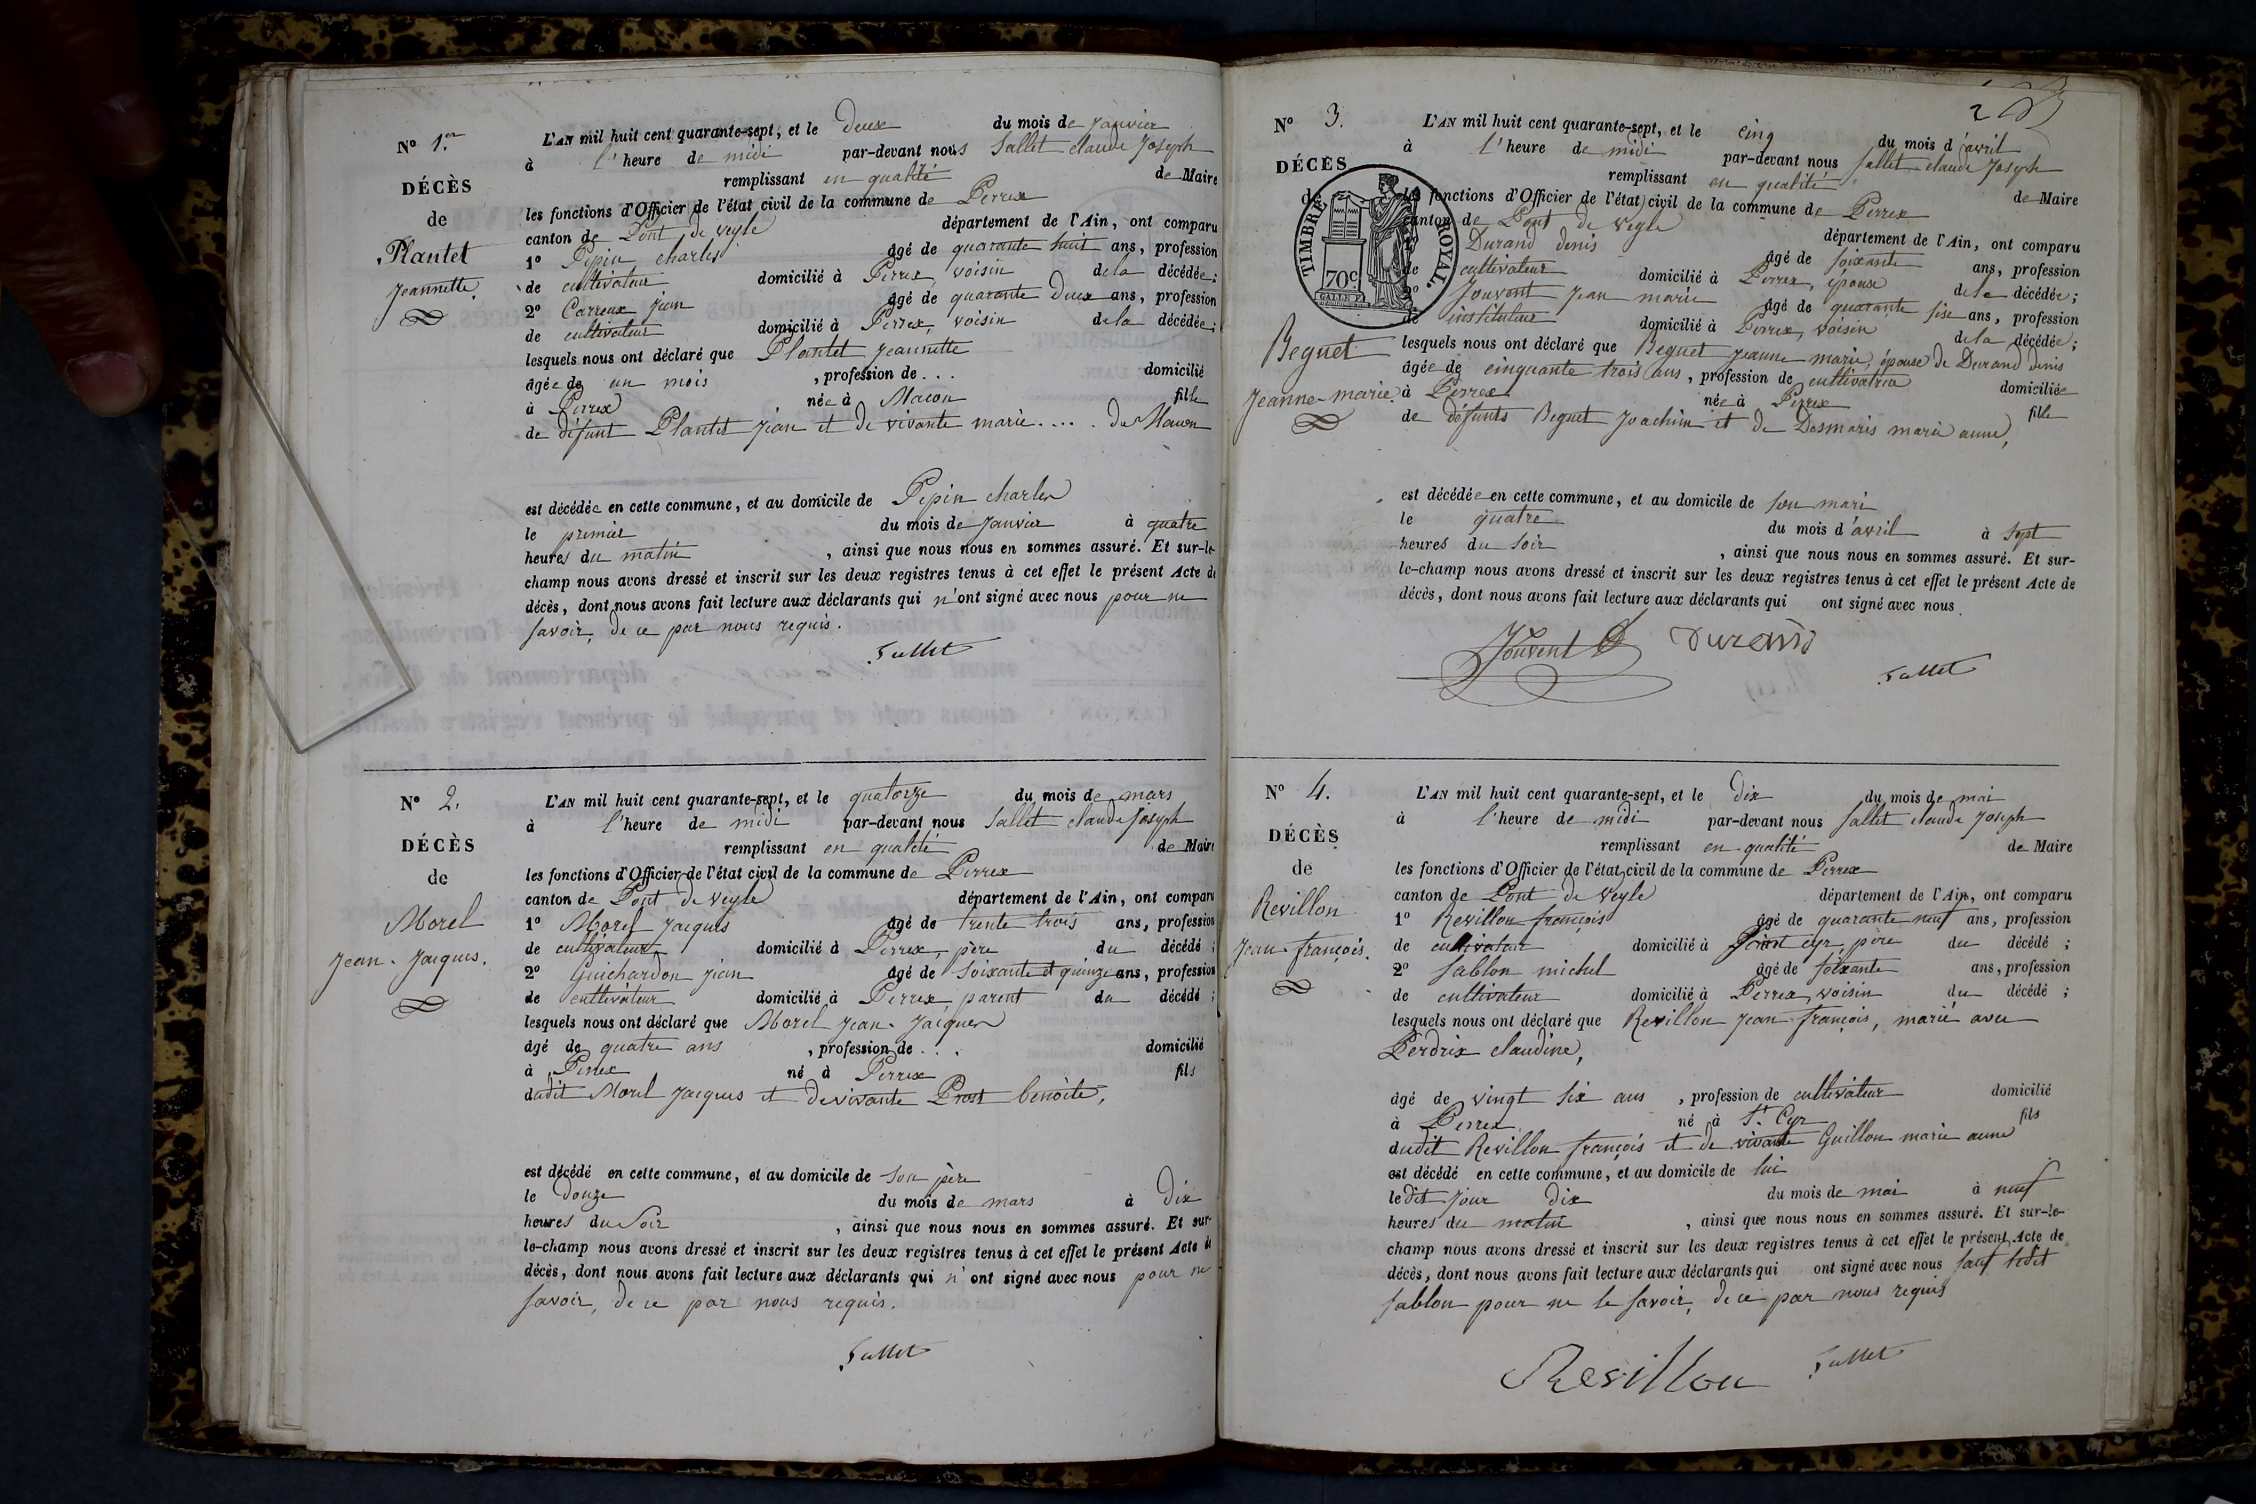 N° 1.er
DÉCÈS
de
Plantet
Jeannette.
L'AN mil huit cent quarante-sept, et le deux du mois de janvier
à l'heure de midi par-devant nous Sallet claude Joseph
remplissant en qualité de Maire
les fonctions d'Officier de l'état civil de la commune de Perrex
canton de Pont de veyle département de l'Ain, ont comparu
1° Pepin charles âgé de quarante huit ans, profession
de cultivateur domicilié à Perrex, voisin de la décédée;
2° Carreaux jean âgé de quarante deux ans, profession
de cultivateur domicilié à Perrex, voisin de la décédée;
lesquels nous ont déclaré que Plantet jeannette
âgée de un mois , profession de . . . domicilié
à Perrex née à Macon fille
de défunt Plantet jean et de vivante marie . . . . de Macon
est décédée en cette commune, et au domicile de Pepin charles
le premier du mois de janvier à quatre
heures du matin , ainsi que nous nous en sommes assuré. Et sur-le-
champ nous avons dressé et inscrit sur les deux registres tenus à cet effet le présent Acte de
décès, dont nous avons fait lecture aux déclarants qui n'ont signé avec nous pour ne
savoir, de ce par nous requis.
Sallet
N° 2.
DÉCÈS
de
Morel
Jean-Jacques.
L'AN mil huit cent quarante-sept, et le quatorze du mois de mars
à l'heure de midi par-devant nous Sallet claude Joseph
remplissant en qualité de Maire
les fonctions d'Officier de l'état civil de la commune de Perrex
canton de Pont de veyle département de l'Ain, ont comparu
1° Morel Jacques âgé de trente trois ans, profession
de cultivateur domicilié à Perrex, père du décédé ;
2° Guichardon jean âgé de soixante et quinze ans, profession
de cultivateur domicilié à Perrex parent du décédé ;
lesquels nous ont déclaré que Morel jean-jacques
âgé de quatre ans , profession de . . . domicilié
à Perrex né à Perrex fils
dudit Morel jacques et de vivante Prost benoite,
est décédé en cette commune, et au domicile de son père
le douze du mois de mars à dix
heures du soir , ainsi que nous nous en sommes assuré. Et sur-
le-champ nous avons dressé et inscrit sur les deux registres tenus à cet effet le présent Acte de
décès, dont nous avons fait lecture aux déclarants qui n'ont signé avec nous pour ne
savoir, de ce par nous requis.
Sallet
2
N° 3.
DÉCÈS
de
TIMBRE ROYAL.
70c.
Beguet
Jeanne-marie.
L'AN mil huit cent quarante-sept, et le cinq du mois d'avril
à l'heure de midi par-devant nous Sallet claude Joseph
remplissant en qualité de Maire
les fonctions d'Officier de l'état civil de la commune de Perrex
canton de Pont de veyle département de l'Ain, ont comparu
Durand denis âgé de soixante ans, profession
de cultivateur domicilié à Perrex, époux de la décédée;
2° Jouvent jean marie âgé de quarante six ans, profession
de instituteur domicilié à Perrex, voisin de la décédée;
lesquels nous ont déclaré que Beguet jeanne marie, épouse de Durand denis
âgée de cinquante trois ans, profession de cultivatrice domiciliée
à Perrex née à Perrex fille
de défunts Beguet Joachim et de Desmaris marie anne,
est décédée en cette commune, et au domicile de son mari
le quatre du mois d'avril à sept
heures du soir , ainsi que nous nous en sommes assuré. Et sur-
le-champ nous avons dressé et inscrit sur les deux registres tenus à cet effet le présent Acte de
décès, dont nous avons fait lecture aux déclarants qui ont signé avec nous.
Jouvent Durand
Sallet
N° 4.
DÉCÈS
de
Revillon
Jean-françois.
L'AN mil huit cent quarante-sept, et le dix du mois de mai
à l'heure de midi par-devant nous Sallet claude Joseph
remplissant en qualité de Maire
les fonctions d'Officier de l'état civil de la commune de Perrex
canton de Pont de veyle département de l'Ain, ont comparu
1° Revillon françois âgé de quarante neuf ans, profession
de cultivateur domicilié à saint cyr père du décédé ;
2° Sablon michel âgé de soixante ans, profession
de cultivateur domicilié à Perrex, voisin du décédé ;
lesquels nous ont déclaré que Revillon jean françois, marié avec
Perdrix claudine,
âgé de vingt six ans , profession de cultivateur domicilié
à Perrex né à St. Cyr fils
dudit Revillon françois et de vivante Guillon marie anne
est décédé en cette commune, et au domicile de lui
le dit jour dix du mois de mai à neuf
heures du matin , ainsi que nous nous en sommes assuré. Et sur-le-
champ nous avons dressé et inscrit sur les deux registres tenus à cet effet le présent Acte de
décès, dont nous avons fait lecture aux déclarants qui ont signé avec nous sauf ledit
Sablon pour ne le savoir, de ce par nous requis
Revillon Sallet